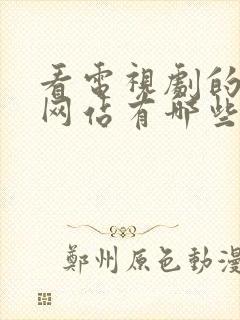 看電視劇的
网佔有哪些
鄭州原色動漫